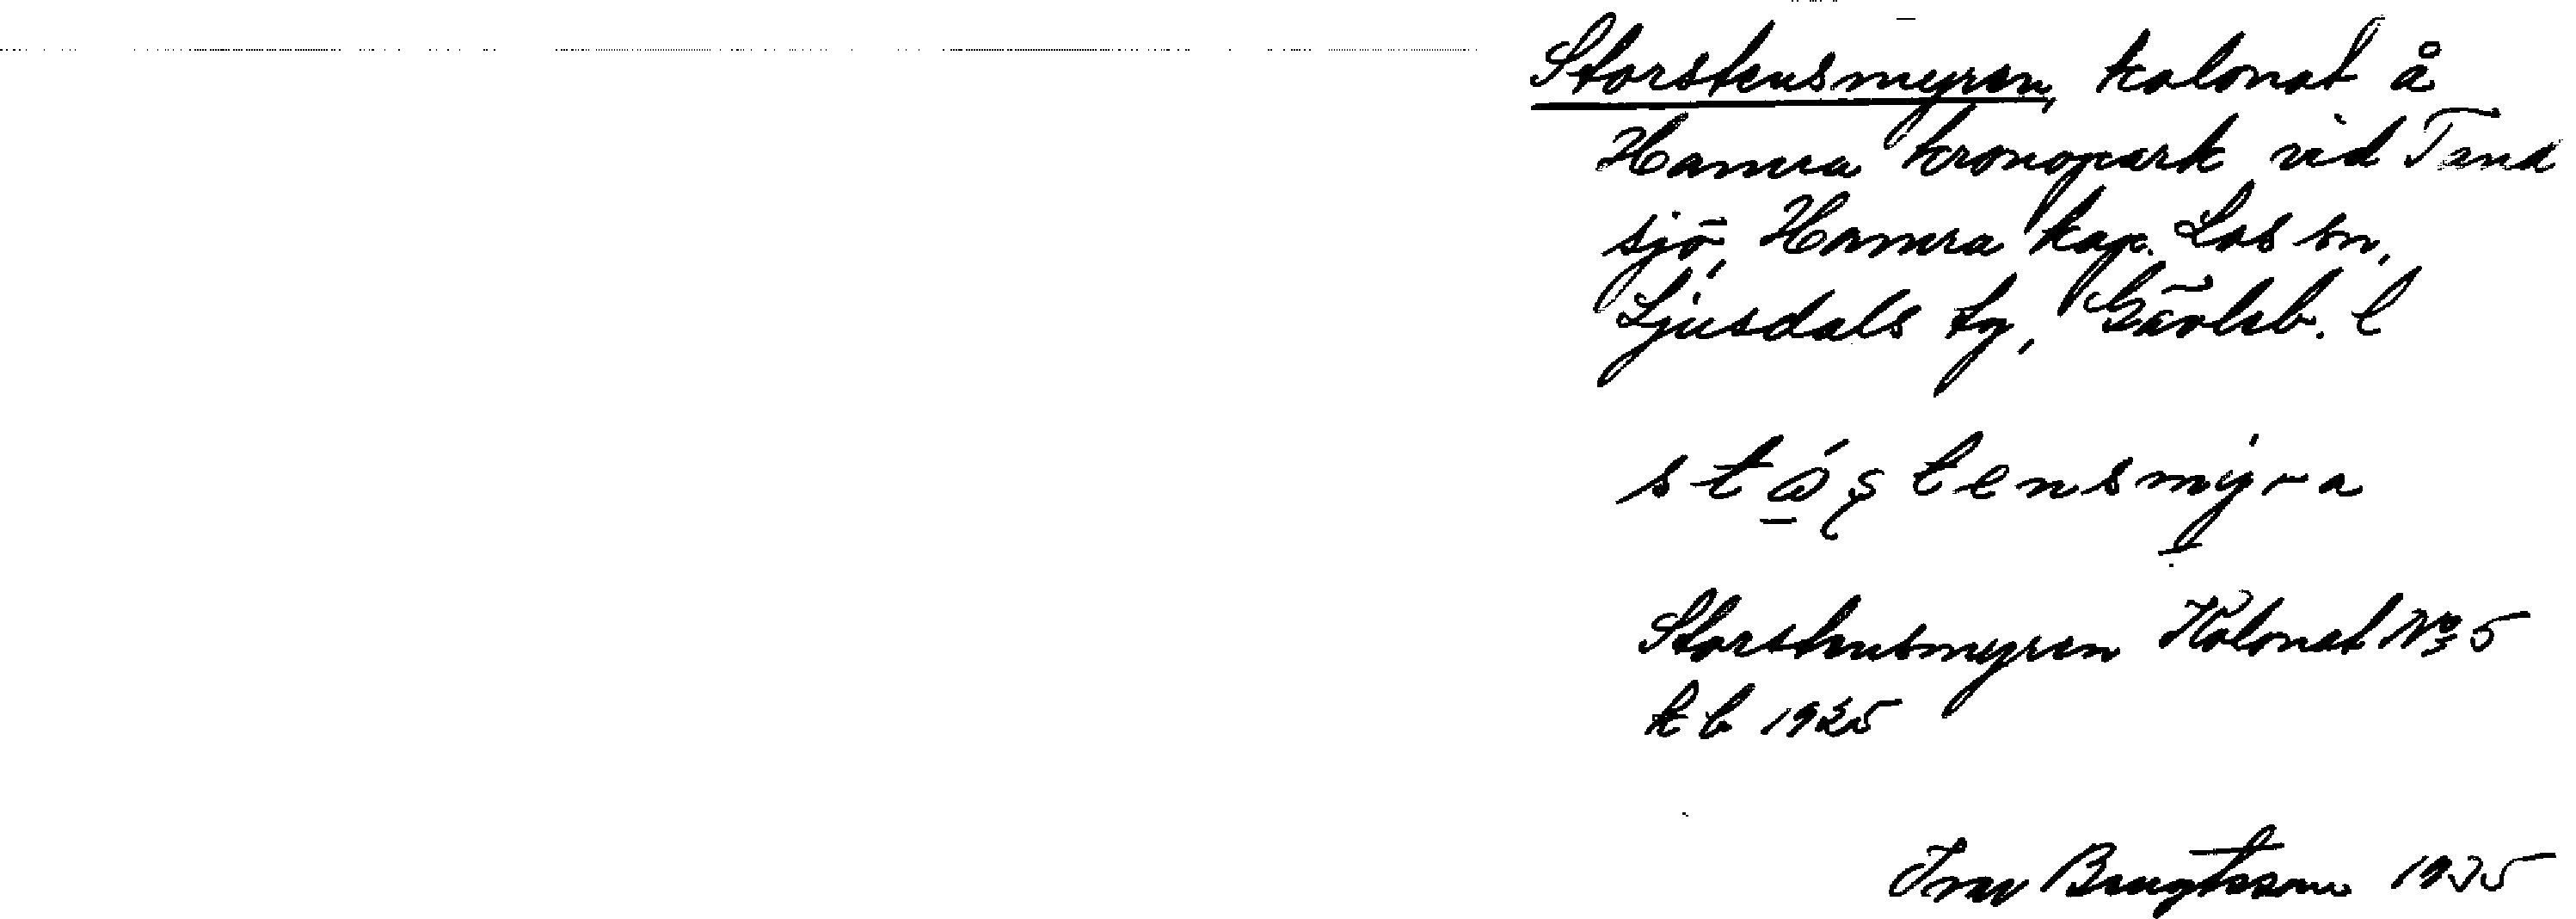 Storstensmyren, kolonat å
Hamra kronopark vid Tand
sjö, Hamra kap. Los sn,
Ljusdals tg, Gävleb. l
stá̱ştensmy̱ra
Storstensmyren Kolonat № 5
kb 1925
Ivar Bengtsson 1935